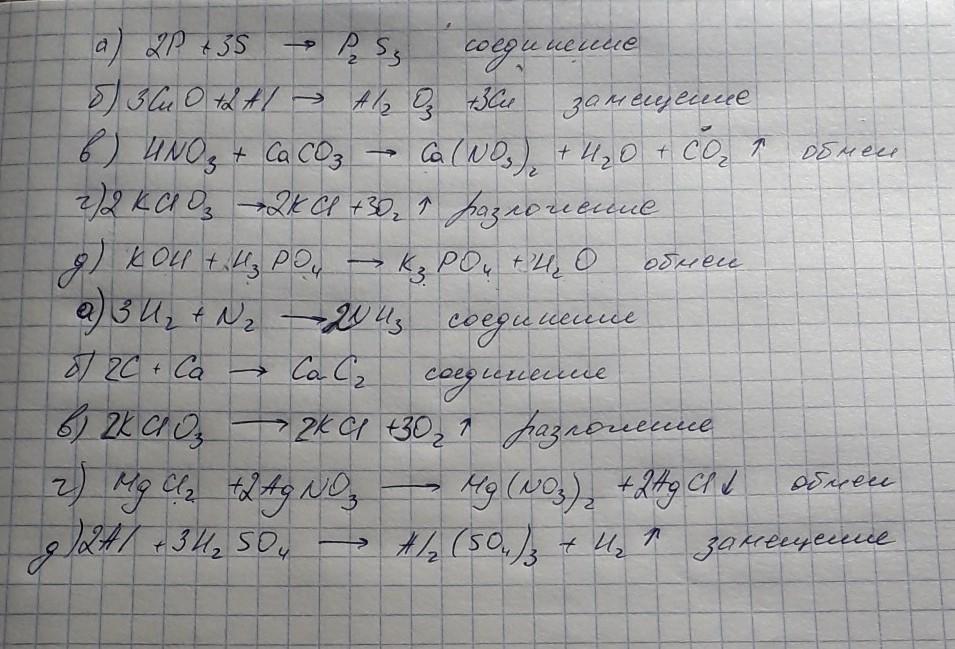 а) 2P + 3S → P₂S₃ соединение
б) 3CuO + 2Al → Al₂O₃ + 3Cu замещение
в) HNO₃ + CaCO₃ → Ca(NO₃)₂ + H₂O + CO₂↑ обмен
г) 2KClO₃ → 2KCl + 3O₂↑ разложение
д) KOH + H₃PO₄ → K₃PO₄ + H₂O обмен
а) 3H₂ + N₂ → 2NH₃ соединение
б) 2C + Ca → CaC₂ соединение
в) 2KClO₃ → 2KCl + 3O₂↑ разложение
г) MgCl₂ + 2AgNO₃ → Mg(NO₃)₂ + 2AgCl↓ обмен
д) 2Al + 3H₂SO₄ → Al₂(SO₄)₃ + H₂↑ замещение